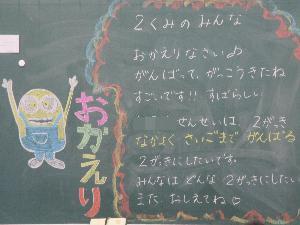 2くみのみんな
おかえりなさい♪
がんばって、がっこうきたね
すごいです!! すばらしい
せんせいは、2がっき
なかよく さいごまで がんばる
2がっきにしたいです。
みんなは どんな 2がっきにしたい
また おしえてね♡
おかえり